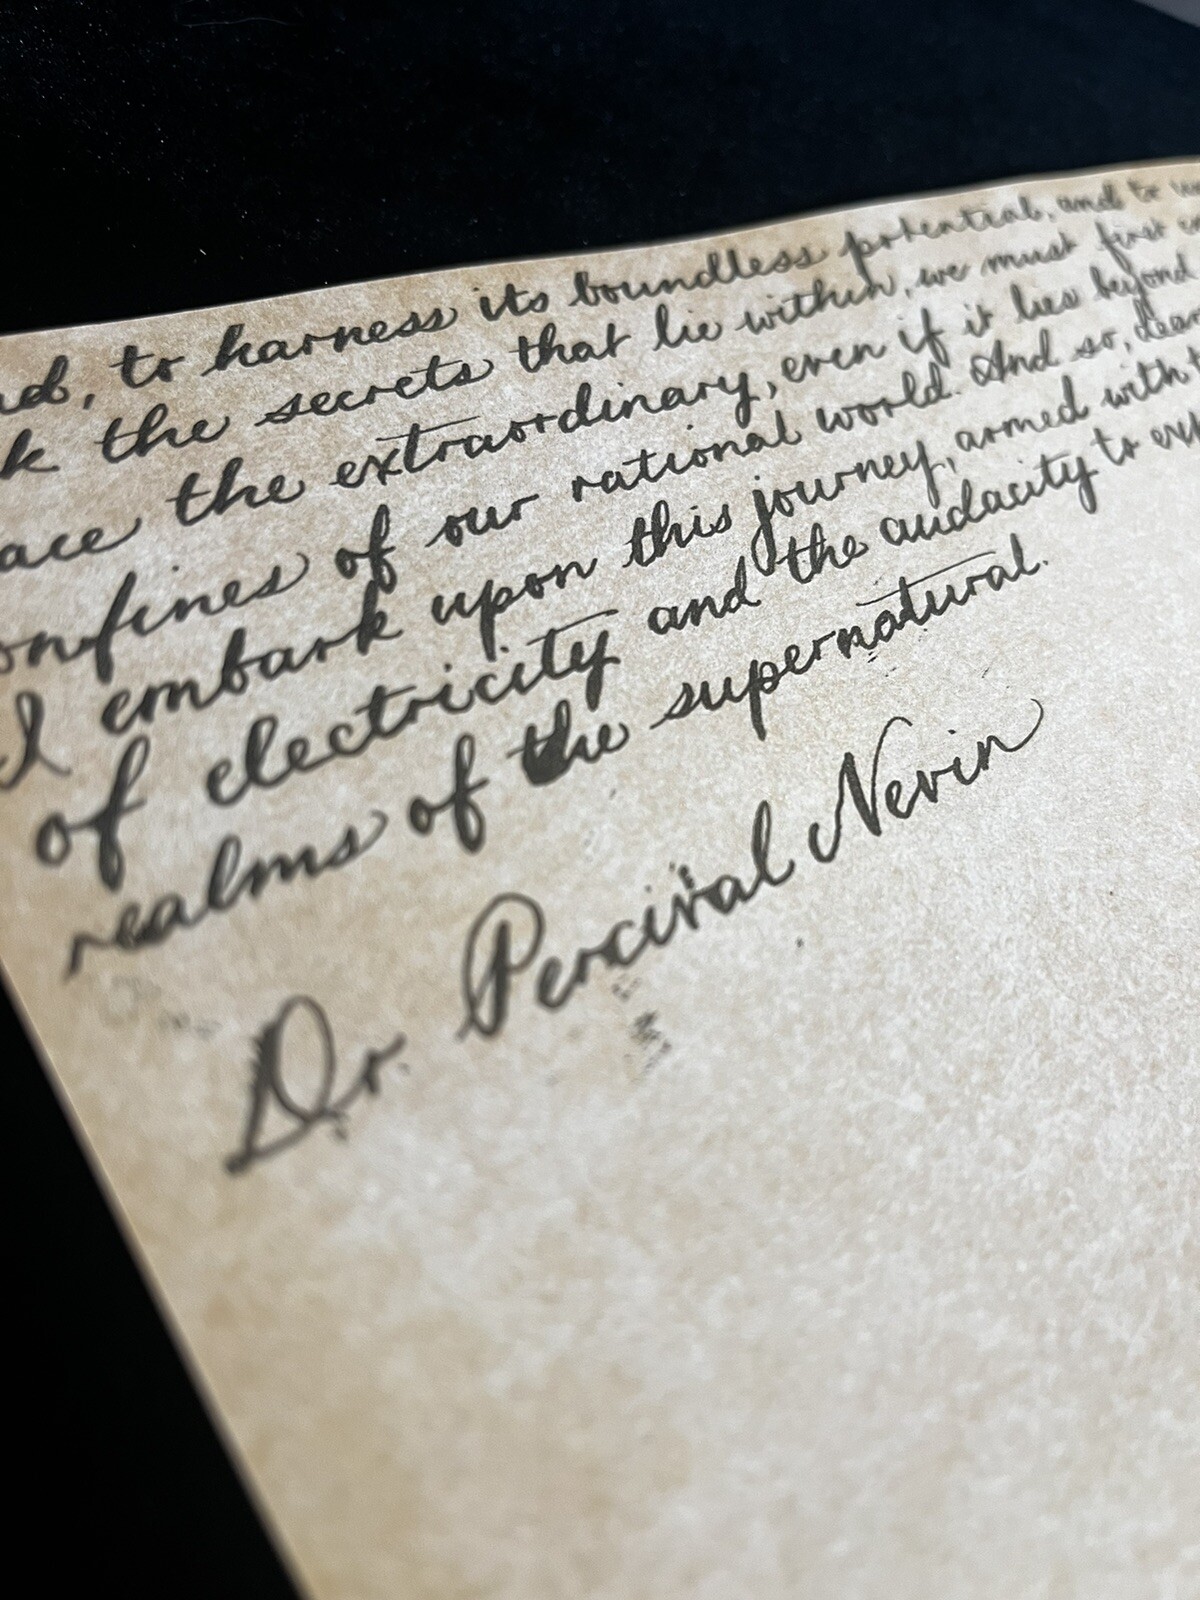 to harness its boundless potential, and to
the secrets that lie within, we must first
the extraordinary, even if it lies beyond
of our rational world. And so,
I embark upon this journey, armed with
of electricity and the audacity to
realms of the supernatural.
Dr. Percival Nevin